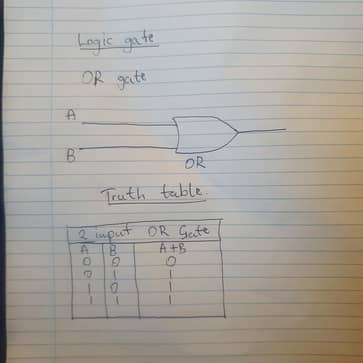 Logic gate
OR gate
A
B
OR
Truth table
2 input OR Gate
A B A+B
0 0 0
0 1 1
1 0 1
1 1 1